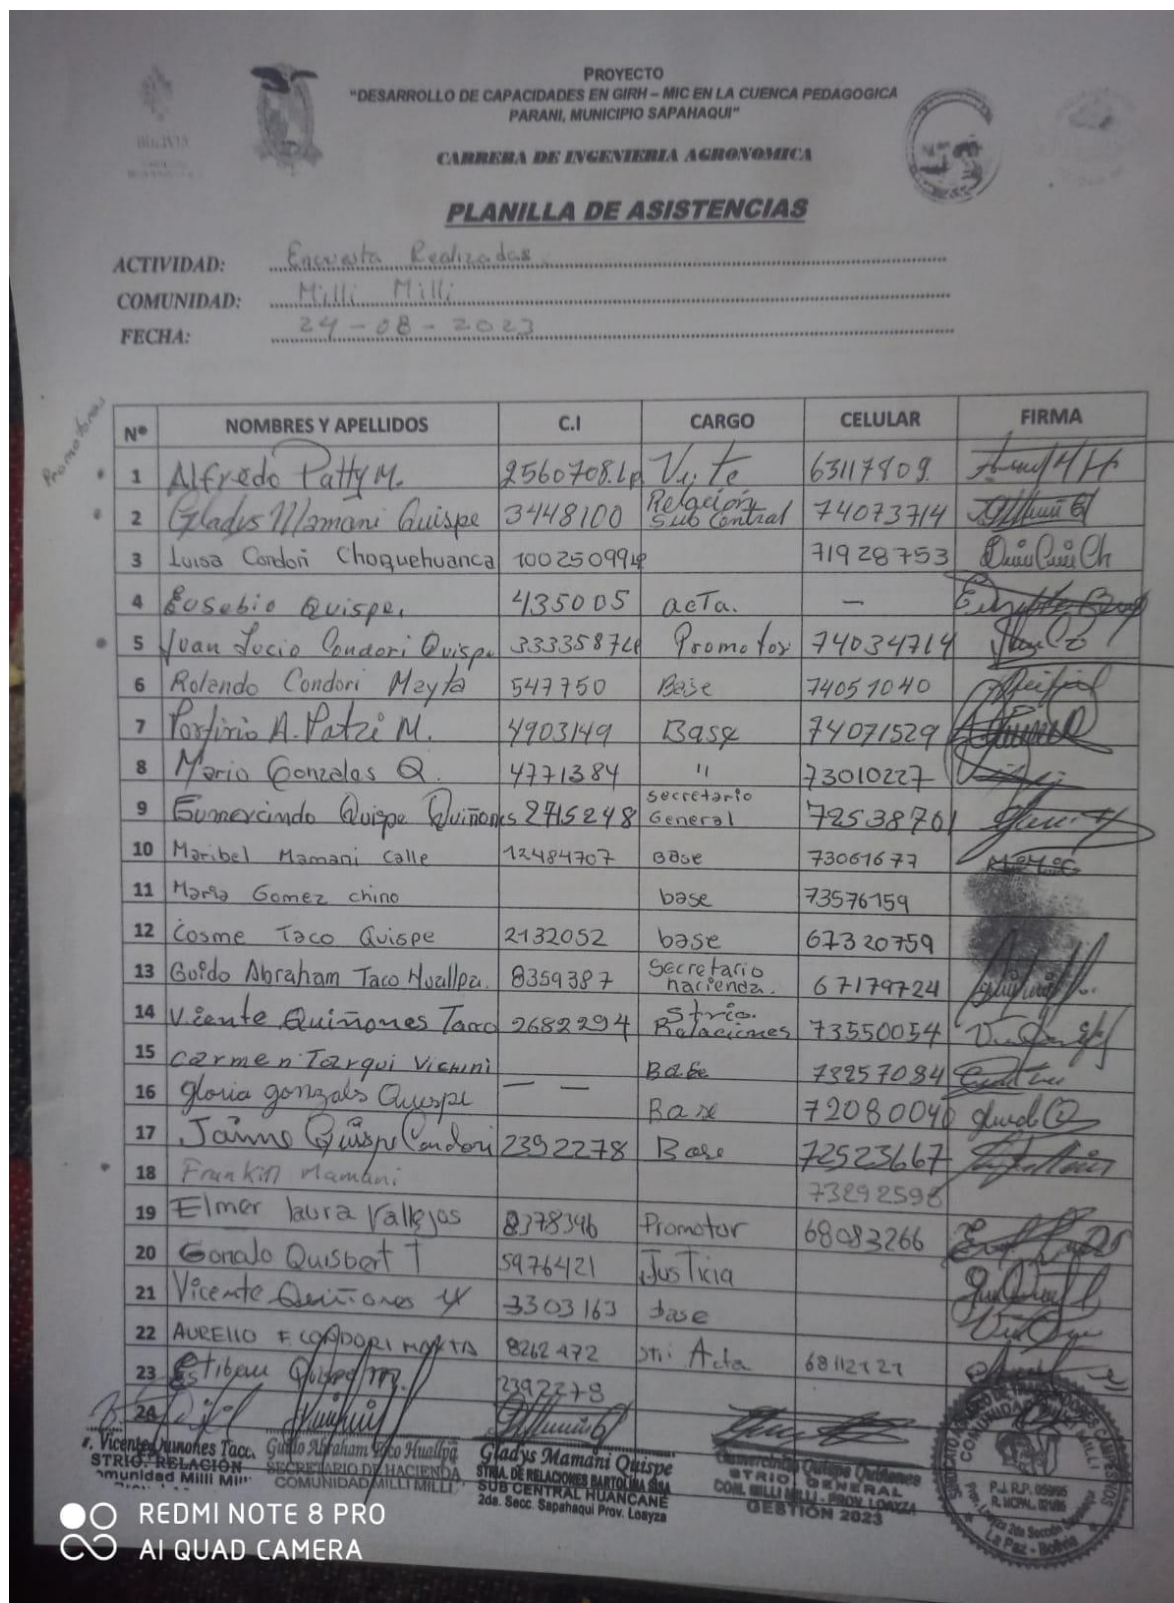 PROYECTO
"DESARROLLO DE CAPACIDADES EN GIRH – MIC EN LA CUENCA PEDAGOGICA
PARANI, MUNICIPIO SAPAHAQUI"
CARRERA DE INGENIERIA AGRONOMICA
PLANILLA DE ASISTENCIAS
ACTIVIDAD: Encuesta Realizadas
COMUNIDAD: Milli Milli
FECHA: 24-08-2023
Promotores
Nº NOMBRES Y APELLIDOS C.I CARGO CELULAR FIRMA
1 Alfredo Patty M. 2560708.Lp 63117809
2 Gladys Mamani Quispe 3448100 Relación Sub Central 74073714
3 Luisa Condori Choquehuanca 10025099 71928753
4 Eusebio Quispe. 435005 acTa. —
5 Juan Lucio Condori Quispe 3333587 Promotor 74034714
6 Rolando Condori Mayta 547750 Base 74051040
7 Porfirio A. Patzi M. 4903149 Base 74071529
8 Mario Gonzales Q. 4771384 " 73010227
9 Gumercindo Quispe Quiñones 2715248 secretario General 72538701
10 Maribel Mamani Calle 12484707 Base 73061677
11 Maria Gomez chino base 73576159
12 Cosme Taco Quispe 2132052 base 67320759
13 Guido Abraham Taco Huallpa. 8359387 Secretario hacienda. 67179724
14 Vicente Quiñones Taco 2682294 Strio. Relaciones 73550054
15 Carmen Tarqui Base 73257084
16 gloria gonzals Quispe — — Base 72080040
17 Jaime Quispe Condori 2392278 Base 72523667
18 Franklin Mamani 73292598
19 Elmer laura Vallejos 8378346 Promotor 68083266
20 Gonalo Quisbert T 5976421 JusTicia
21 Vicente Quiñones 3303163 base
22 AURELIO F. CONDORI MAYTA 8262472 Stri Acta 68112121
23 Estiban Quispe m. 2392278
24
r. Vicente Quiñones Tacc.
STRIO. RELACIÓN
omunidad Milli Mil
Guido Abraham Taco Huallpa
SECRETARIO DE HACIENDA
COMUNIDAD MILLI MILLI
Gladys Mamani Quispe
STRIA. DE RELACIONES BARTOLINA SISA
SUB CENTRAL HUANCANE
2da. Secc. Sapahaqui Prov. Loayza
Gumercindo Quispe Quiñones
STRIO GENERAL
COM. MILLI MILLI - PROV. LOAYZA
GESTIÓN 2023
COMUNIDAD MILLI MILLI
La Paz - Bolivia
REDMI NOTE 8 PRO
AI QUAD CAMERA